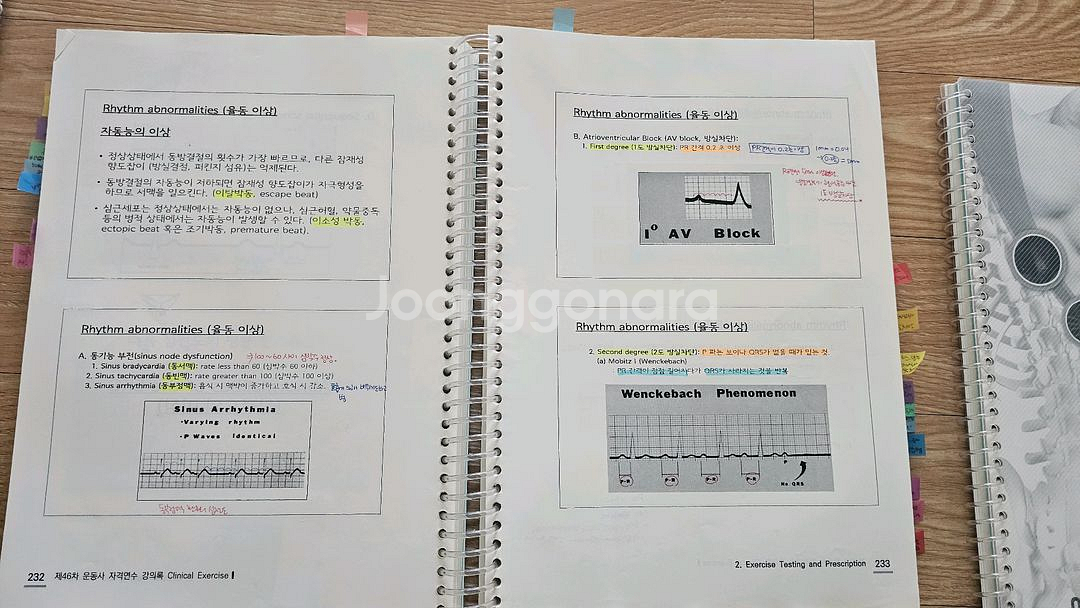 Rhythm abnormalities (율동 이상)
자동능의 이상
• 정상상태에서 동방결절의 횟수가 가장 빠르므로, 다른 잠재성
양도잡이 (방실결절, 퍼킨지 섬유)는 억제된다.
• 동방결절의 자동능이 저하되면 잠재성 양도잡이가 자극형성을
하므로 서맥을 일으킨다. (이탈박동, escape beat)
• 심근세포는 정상상태에서는 자동능이 없으나, 심근허혈, 약물중독
등의 병적 상태에서는 자동능이 발생할 수 있다. (이소성 박동,
ectopic beat 혹은 조기박동, premature beat).
Rhythm abnormalities (율동 이상)
A. 동기능 부전(sinus node dysfunction)
1. Sinus bradycardia (동서맥): rate less than 60 (심박수 60 이하)
2. Sinus tachycardia (동빈맥): rate greater than 100 (심박수 100 이상)
3. Sinus arrhythmia (동부정맥): 흡식 시 맥박이 증가하고 호식 시 감소.
Sinus Arrhythmia
•Varying rhythm
•P Waves Identical
232 제46차 운동사 자격연수 강의록 Clinical Exercise Ⅰ
Rhythm abnormalities (율동 이상)
B. Atrioventricular Block (AV block, 방실차단):
1. First degree (1도 방실차단): PR 간격 0.2 초 이상
1° AV Block
Rhythm abnormalities (율동 이상)
2. Second degree (2도 방실차단): P 파는 보이나 QRS가 없을 때가 있는 것.
(a) Mobitz I (Wenckebach)
PR 간격이 점점 길어지다가 QRS가 사라지는 것을 반복
Wenckebach Phenomenon
P-R P-R P-R P-R
P
No QRS
2. Exercise Testing and Prescription 233
Joonggonara